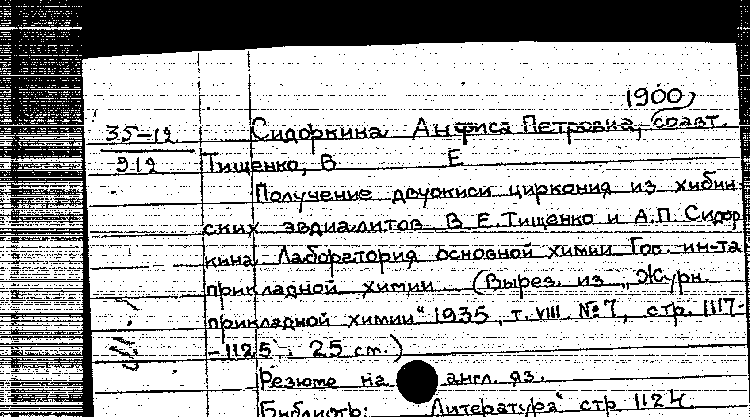 1900,
35-12 Сидоркина Анфиса Петровна, соавт.
912 Тищенко, В Е
Получение двуокиси циркония из хибин-
ских эвдиалитов В.Е.Тищенко и А.П.Сидор
кина. Лаборатория основной химии Гос. ин-та
прикладной химии (Вырез. из „Журн.
прикладной химии" 1935, т. VIII №7, стр. 1117-
-1125; 25 см.)
Резюме на англ. яз.
Библиогр: „Литература" стр 1124